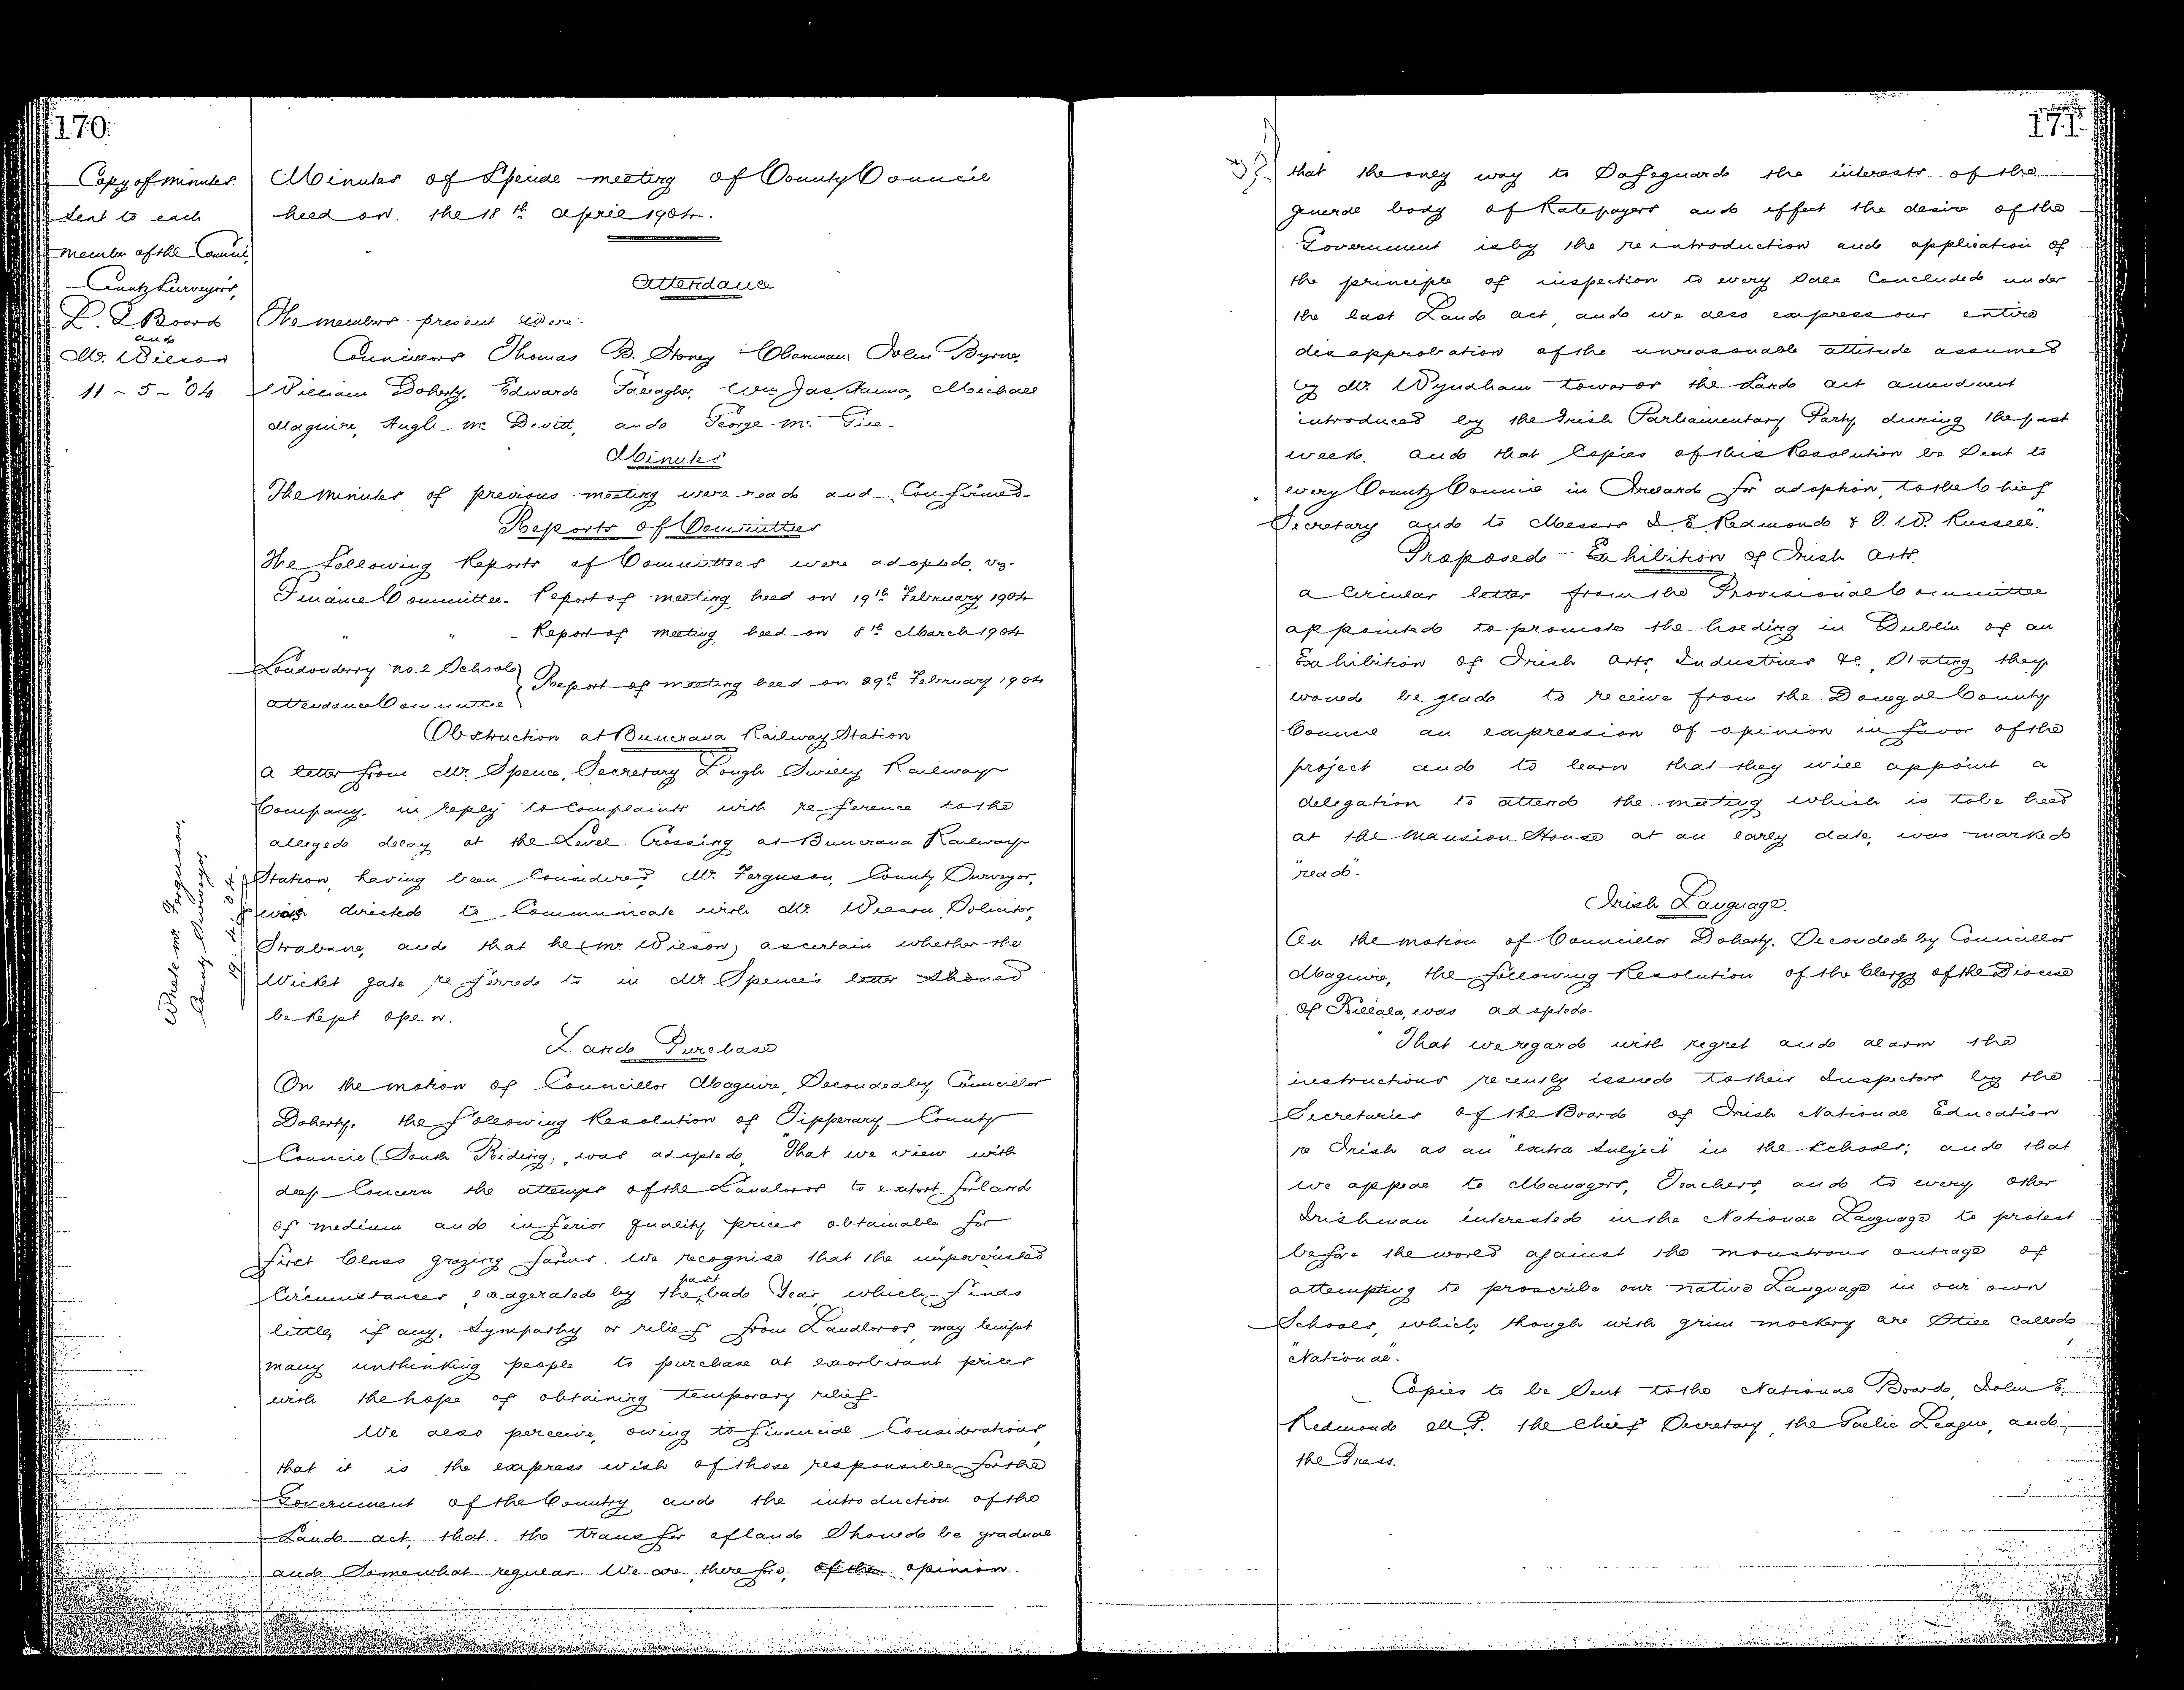 170.
Copy of minutes
sent to each
member of the Council,
County Surveyors,
L. G. Board
and
Mr. Wilson
11 - 5 - '04
Minutes of Special meeting of County Council
held on the 18th April 1904.
Attendance
The members present were:
Councillors Thomas B. Stoney Chairman, John Byrne,
William Doherty, Edward Gallagher, Wm Jas Hanna, Michael
Maguire, Hugh McDevitt, and George McGee.
Minutes
The minutes of previous meeting were read and Confirmed.
Reports of Committees
The following Reports of Committees were adopted, viz.
Finance Committee. Report of meeting held on 19th February 1904
" " - Report of meeting held on 8th March 1904
Londonderry No. 2 School
Attendance Committee } Report of meeting held on 29th February 1904
Obstruction at Buncrana Railway Station
A letter from Mr. Spence, Secretary Lough Swilly Railway
Company, in reply to complaints with reference to the
alleged delay at the Level Crossing at Buncrana Railway
Station, having been Considered, Mr. Ferguson, County Surveyor,
was directed to Communicate with Mr. Wilson Solicitor,
Strabane, and that he (Mr Wilson) ascertain whether the
Wicket gate referred to in Mr. Spence's letter should
be kept open.
Wrote Mr. Ferguson,
County Surveyor
19. 4. 04.
Land Purchase
On the motion of Councillor Maguire, Seconded by Councillor
Doherty, the following Resolution of Tipperary County
Council (South Riding), was adopted, "That we view with
deep Concern the attempt of the Landlords to extort for land
of medium and inferior quality prices obtainable for
first Class grazing farms. We recognise that the impoverished
Circumstances, exagerated by the past bad Year, which finds
little, if any, Sympathy or relief from Landlords, may tempt
many unthinking people to purchase at exorbitant prices
with the hope of obtaining temporary relief.
We also perceive, owing to financial Considerations,
that it is the express wish of those responsible for the
Government of the Country and the introduction of the
Land Act, that the transfer of land Should be gradual
and Somewhat regular. We are, therefore, of the opinion
171.
that the only way to Safeguard the interests of the
general body of Ratepayers and effect the desire of the
Government is by the reintroduction and application of
the principle of inspection to every Sale Concluded under
the last Land Act, and we also express our entire
disapprobation of the unreasonable attitude assumed
by Mr. Wyndham towards the Land Act amendment
introduced by the Irish Parliamentary Party during the past
week. And that Copies of this Resolution be Sent to
every County Council in Ireland for adoption, to the Chief
Secretary and to Messrs J. E. Redmond & T. W. Russell."
Proposed Exhibition of Irish Arts.
A Circular letter from the Provisional Committee
appointed to promote the holding in Dublin of an
Exhibition of Irish Arts, Industries &c, Stating they
would be glad to receive from the Donegal County
Council an expression of opinion in favor of the
project and to learn that they will appoint a
delegation to attend the meeting which is to be held
at the Mansion House at an early date, was marked
"read".
Irish Language.
On the motion of Councillor Doherty, Seconded by Councillor
Maguire, the following Resolution of the Clergy of the Diocese
of Killala, was adopted.
"That we regard with regret and alarm the
instructions recently issued to their Inspectors by the
Secretaries of the Board of Irish National Education
re Irish as an "extra Subject" in the Schools; and that
we appeal to Managers, Teachers, and to every other
Irishman interested in the National Language to protest
before the world against the monstrous outrage of
attempting to proscribe our native Language in our own
Schools, which, though with grim mockery are Still called
"National".
Copies to be Sent to the National Board, John E.
Redmond M.P. the Chief Secretary, the Gaelic League, and
the Press.